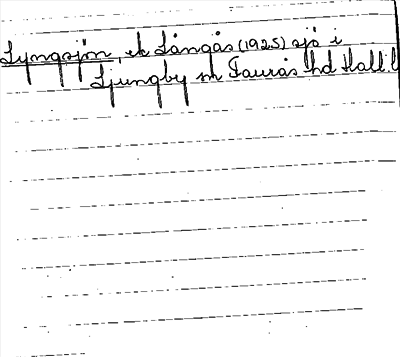 Lyngsjön, ek Långås (1925) sjö i
Ljungby sn Faurås hd Hall.l